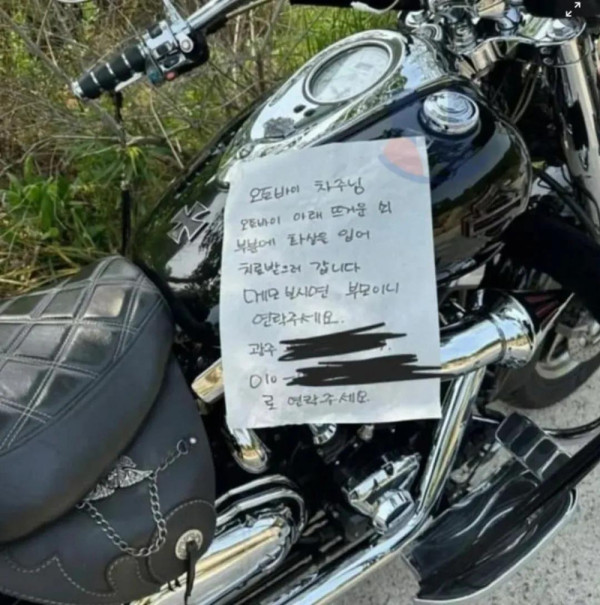 오토바이 차주님
오토바이 아래 뜨거운 쇠
부분에 화상을 입어
치료받으러 갑니다
메모 보시면 부모이니
연락주세요.
광주
010
로 연락주세요